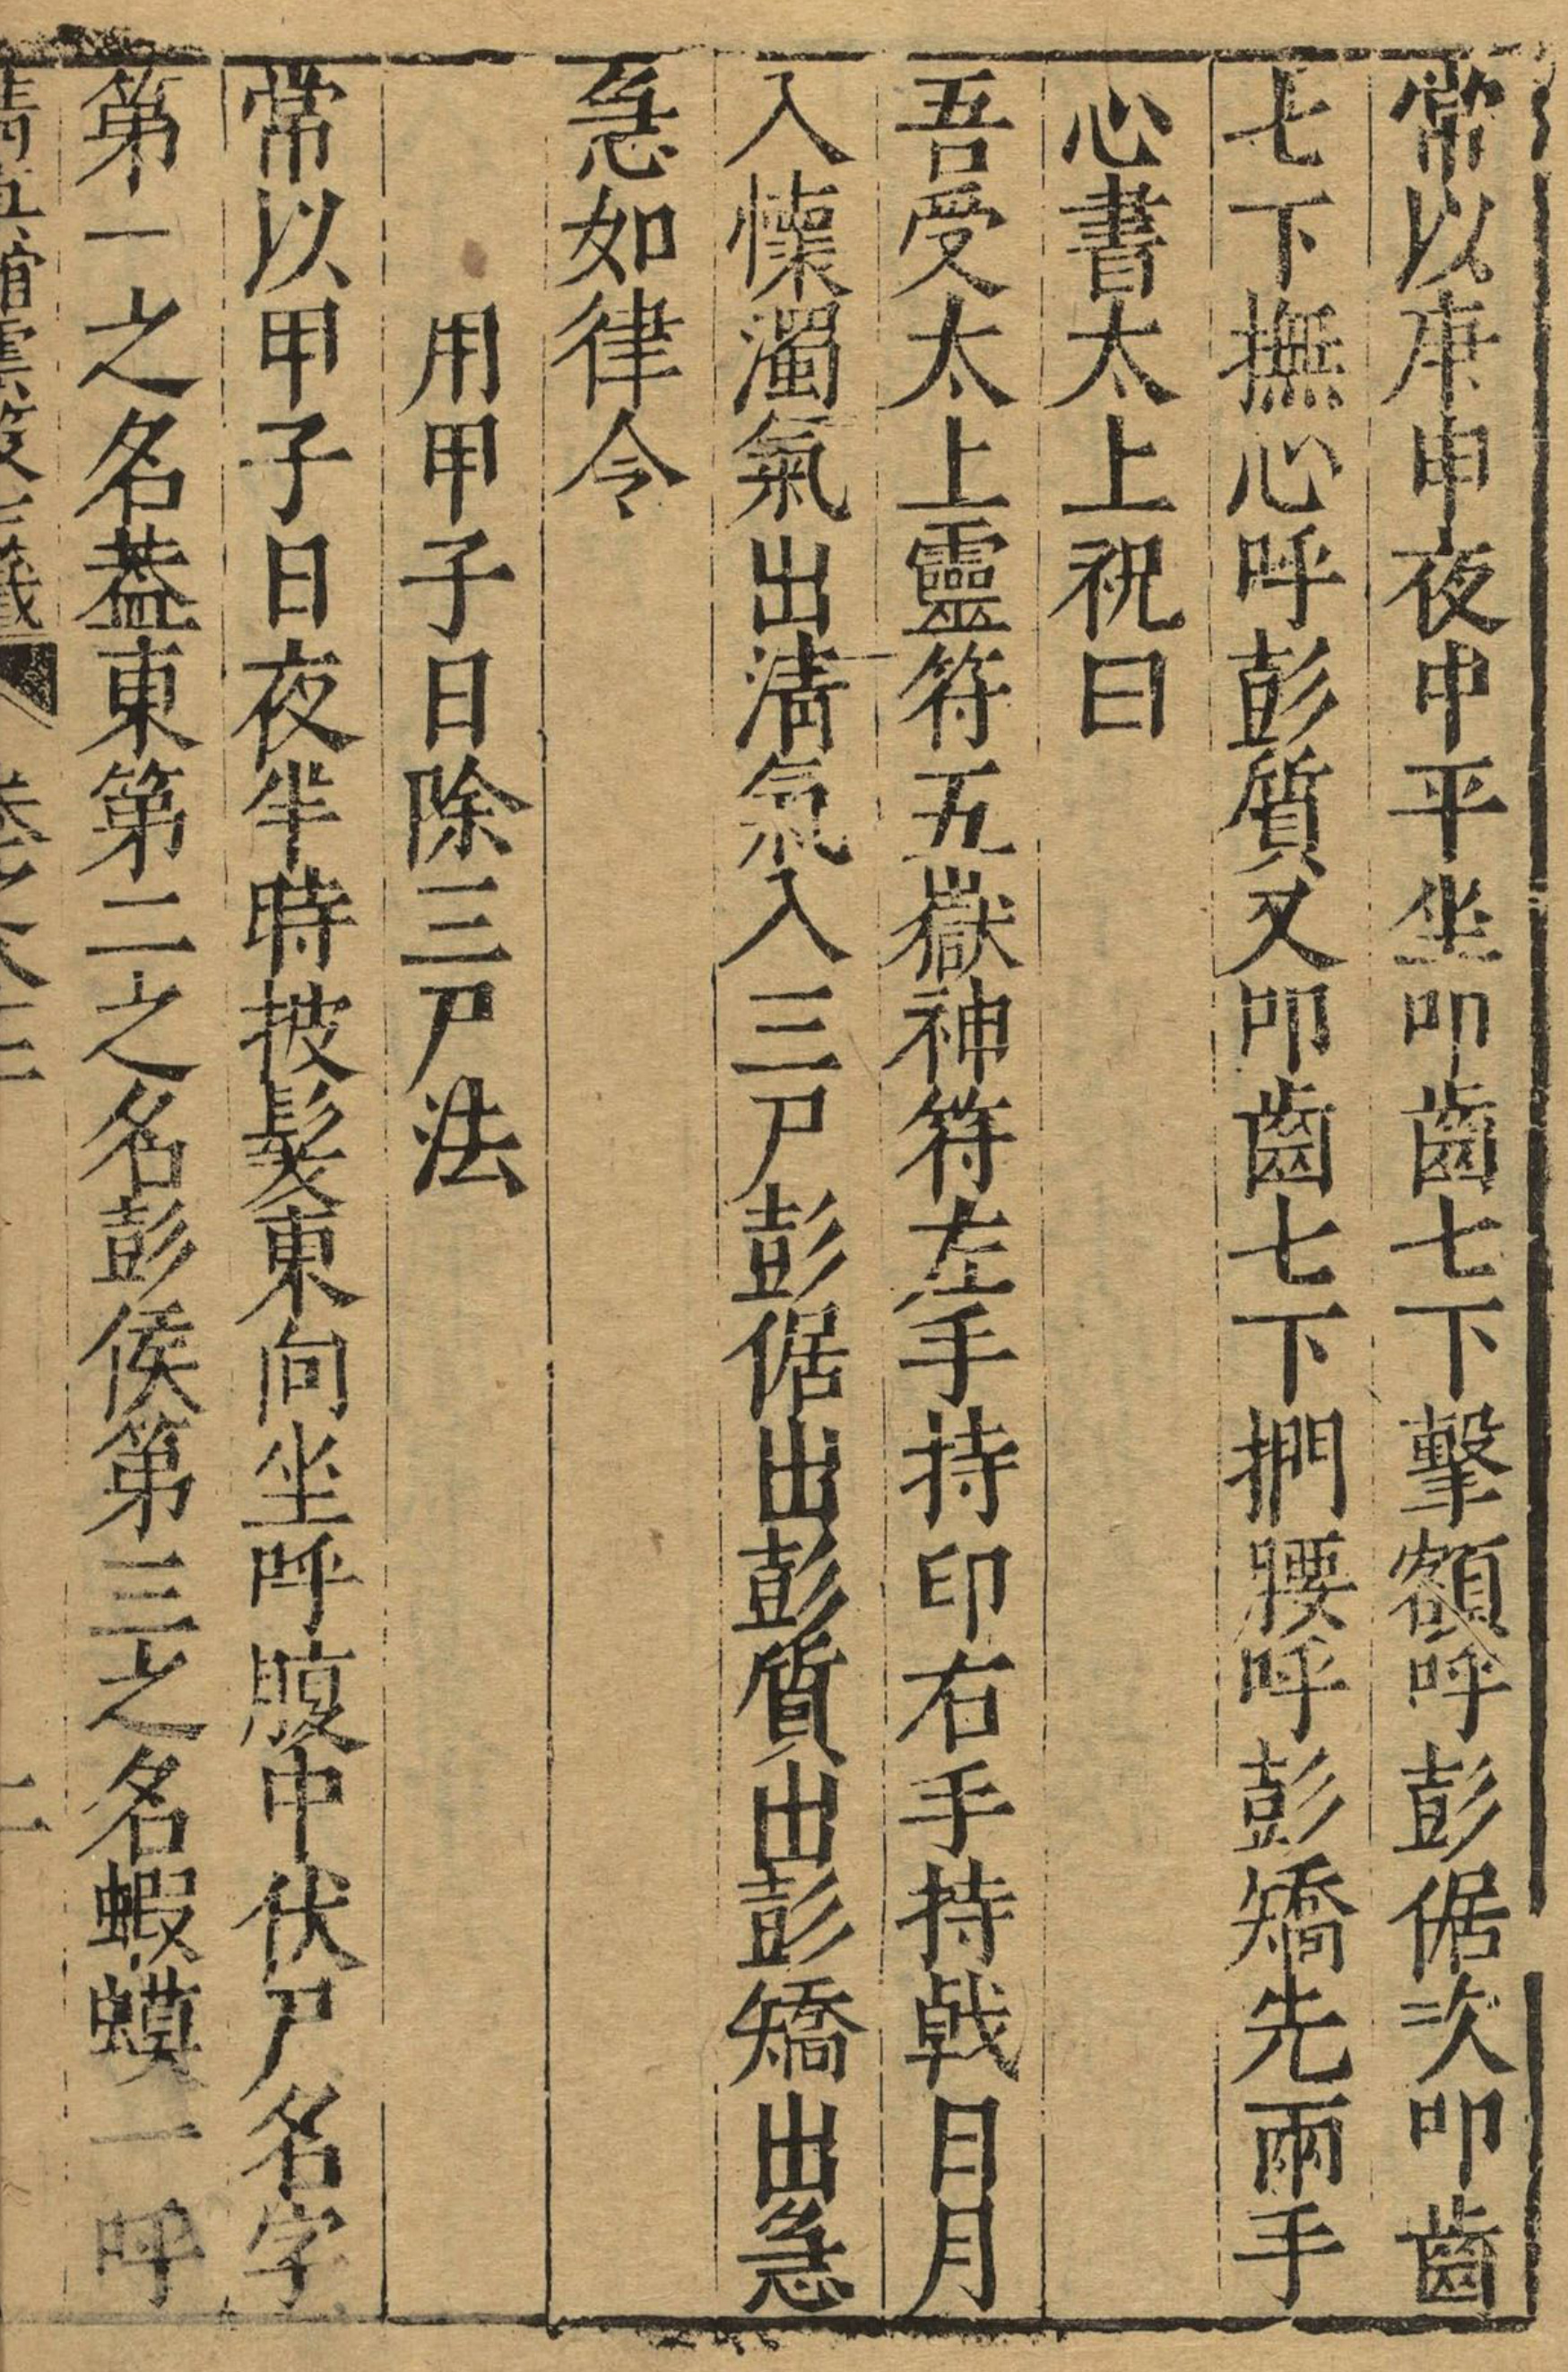 常以庚申夜中平坐叩齒七下擊額呼彭倨次叩齒
七下撫心呼彭質又叩齒七下捫腰呼彭矯先兩手
心書太上祝曰
吾受太上靈符五嶽神符左手持印右手持戟日月
入懷濁氣出淸氣入三尸彭倨出彭質出彭矯出急
急如律令
用甲子日除三尸法
常以甲子日夜半時披髮東向坐呼腹中伏尸名字
第一之名葢東第二之名彭侯第三之名蝦蟆一呼